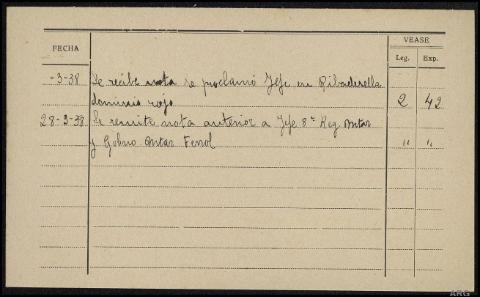 FECHA
VEASE
Leg. Exp.
-3-38 Se recibe nota se proclamó Jefe en Ribadesella
dominio rojo 2 42
28-3-38 Se remite nota anterior a Jefe 8ª Reg Mtar
y Gobno Mtar Ferrol " "
ARG